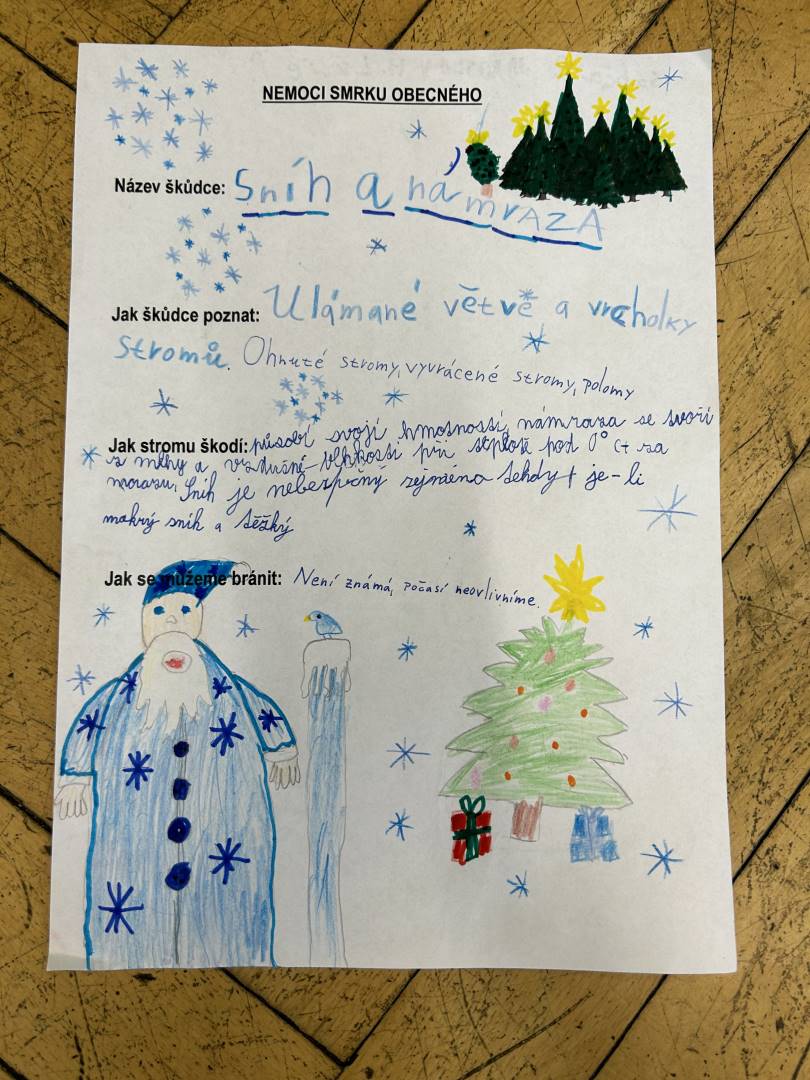 NEMOCI SMRKU OBECNÉHO
Název škůdce: Sníh a námrAZA
Jak škůdce poznat: Ulámané větvě a vrcholky
Stromů. Ohnuté stromy, vyvrácené stromy, polomy
Jak stromu škodí: působí svojí hmotností, námraza se tvoří
z mlhy a vzdušné vlhkosti při teplotě pod 0° C+ za
mrazu, Sníh je nebezpečný zejména tehdy + je-li
mokrý sníh a těžký
Jak se můžeme bránit: Není známá, počasí neovlivníme.